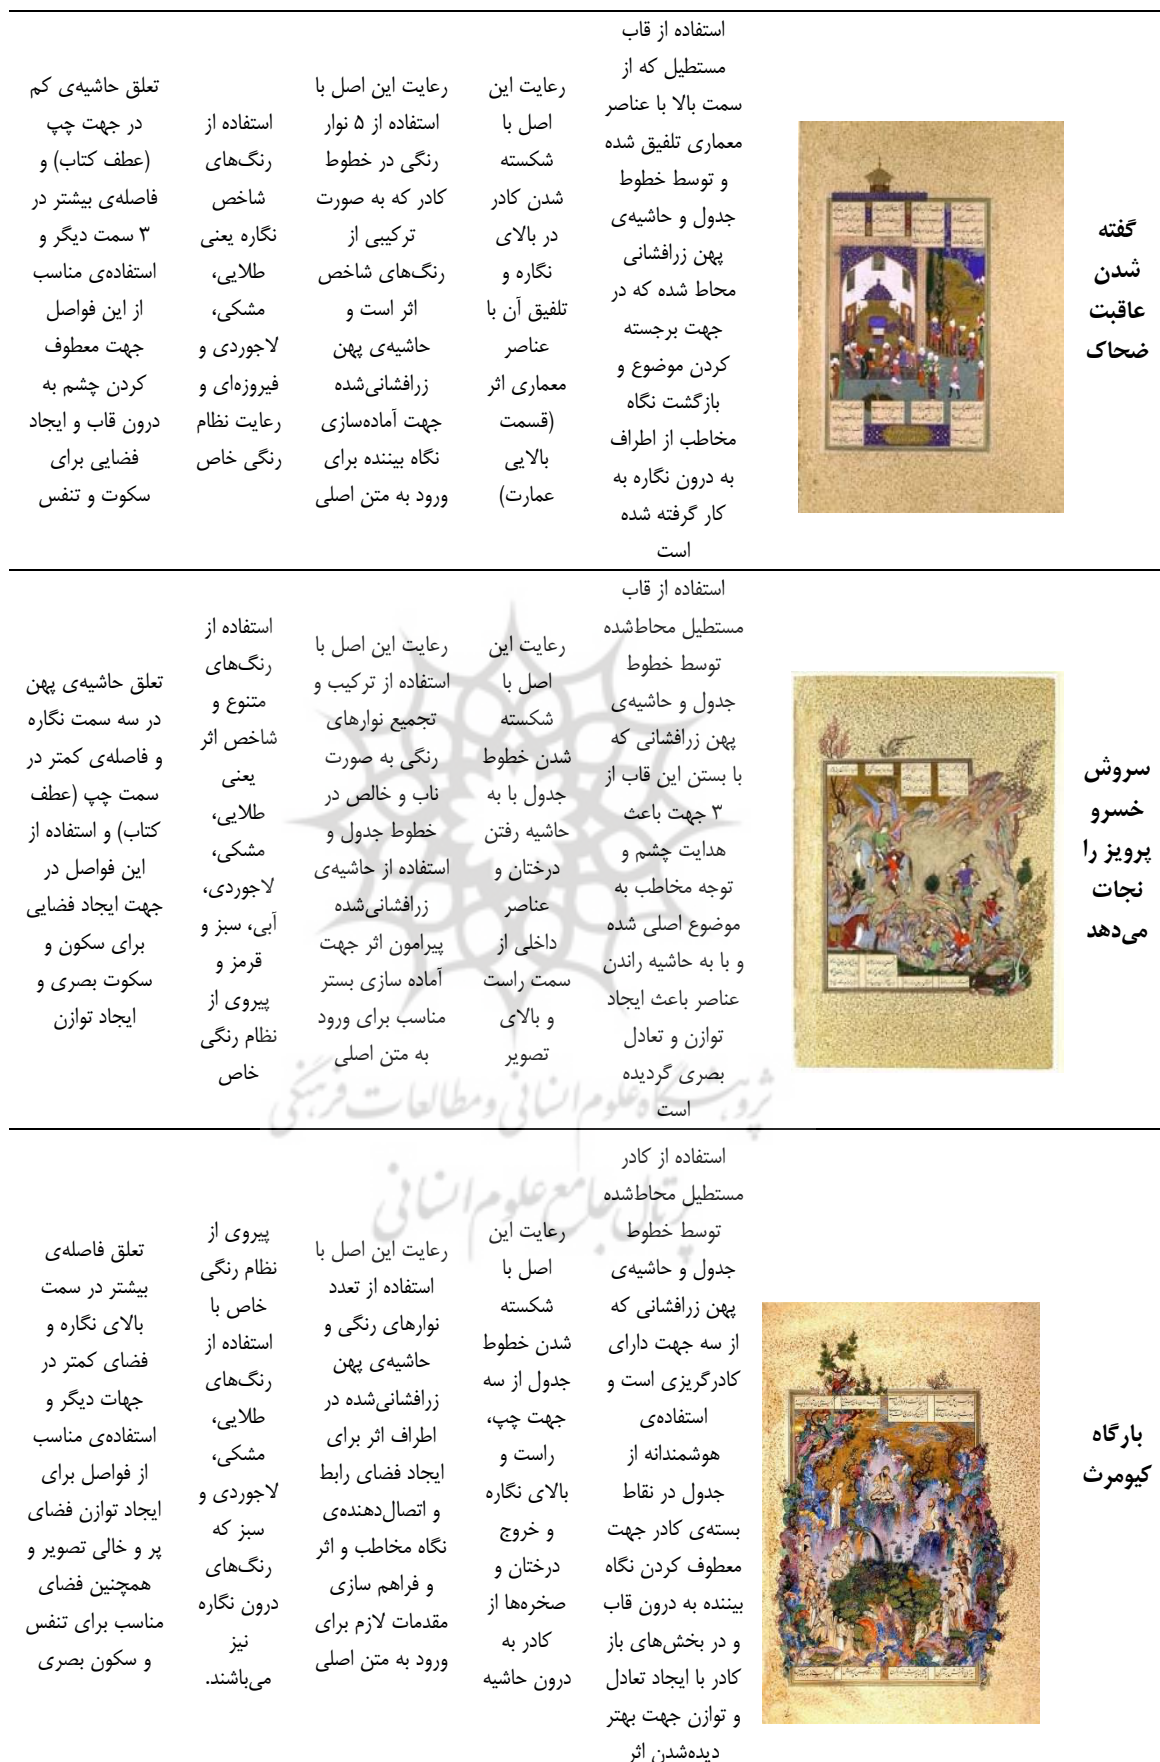 گفته
شدن
عاقبت
ضحاک
استفاده از قاب
مستطیل که از
سمت بالا با عناصر
معماری تلفیق شده
و توسط خطوط
جدول و حاشیه‌ی
پهن زرافشانی
محاط شده که در
جهت برجسته
کردن موضوع و
بازگشت نگاه
مخاطب از اطراف
به درون نگاره به
کار گرفته شده
است
رعایت این
اصل با
شکسته
شدن کادر
در بالای
نگاره و
تلفیق آن با
عناصر
معماری اثر
(قسمت
بالایی
عمارت)
رعایت این اصل با
استفاده از ۵ نوار
رنگی در خطوط
کادر که به صورت
ترکیبی از
رنگ‌های شاخص
اثر است و
حاشیه‌ی پهن
زرافشانی‌شده
جهت آماده‌سازی
نگاه بیننده برای
ورود به متن اصلی
استفاده از
رنگ‌های
شاخص
نگاره یعنی
طلایی،
مشکی،
لاجوردی و
فیروزه‌ای و
رعایت نظام
رنگی خاص
تعلق حاشیه‌ی کم
در جهت چپ
(عطف کتاب) و
فاصله‌ی بیشتر در
۳ سمت دیگر و
استفاده‌ی مناسب
از این فواصل
جهت معطوف
کردن چشم به
درون قاب و ایجاد
فضایی برای
سکوت و تنفس
سروش
خسرو
پرویز را
نجات
می‌دهد
استفاده از قاب
مستطیل محاط‌شده
توسط خطوط
جدول و حاشیه‌ی
پهن زرافشانی که
با بستن این قاب از
۳ جهت باعث
هدایت چشم و
توجه مخاطب به
موضوع اصلی شده
و با به حاشیه راندن
عناصر باعث ایجاد
توازن و تعادل
بصری گردیده
است
رعایت این
اصل با
شکسته
شدن خطوط
جدول با به
حاشیه رفتن
درختان و
عناصر
داخلی از
سمت راست
و بالای
تصویر
رعایت این اصل با
استفاده از ترکیب و
تجمیع نوارهای
رنگی به صورت
ناب و خالص در
خطوط جدول و
استفاده از حاشیه‌ی
زرافشانی‌شده
پیرامون اثر جهت
آماده سازی بستر
مناسب برای ورود
به متن اصلی
استفاده از
رنگ‌های
متنوع و
شاخص اثر
یعنی
طلایی،
مشکی،
لاجوردی،
آبی، سبز و
قرمز و
پیروی از
نظام رنگی
خاص
تعلق حاشیه‌ی پهن
در سه سمت نگاره
و فاصله‌ی کمتر در
سمت چپ (عطف
کتاب) و استفاده از
این فواصل در
جهت ایجاد فضایی
برای سکون و
سکوت بصری و
ایجاد توازن
پژوهشگاه علوم انسانی و مطالعات فرهنگی
پرتال جامع علوم انسانی
بارگاه
کیومرث
استفاده از کادر
مستطیل محاط‌شده
توسط خطوط
جدول و حاشیه‌ی
پهن زرافشانی که
از سه جهت دارای
کادرگریزی است و
استفاده‌ی
هوشمندانه از
جدول در نقاط
بسته‌ی کادر جهت
معطوف کردن نگاه
بیننده به درون قاب
و در بخش‌های باز
کادر با ایجاد تعادل
و توازن جهت بهتر
دیده‌شدن اثر
رعایت این
اصل با
شکسته
شدن خطوط
جدول از سه
جهت چپ،
راست و
بالای نگاره
و خروج
درختان و
صخره‌ها از
کادر به
درون حاشیه
رعایت این اصل با
استفاده از تعدد
نوارهای رنگی و
حاشیه‌ی پهن
زرافشانی‌شده در
اطراف اثر برای
ایجاد فضای رابط
و اتصال‌دهنده‌ی
نگاه مخاطب و اثر
و فراهم سازی
مقدمات لازم برای
ورود به متن اصلی
پیروی از
نظام رنگی
خاص با
استفاده از
رنگ‌های
طلایی،
مشکی،
لاجوردی و
سبز که
رنگ‌های
درون نگاره
نیز
می‌باشند.
تعلق فاصله‌ی
بیشتر در سمت
بالای نگاره و
فضای کمتر در
جهات دیگر و
استفاده‌ی مناسب
از فواصل برای
ایجاد توازن فضای
پر و خالی تصویر و
همچنین فضای
مناسب برای تنفس
و سکون بصری